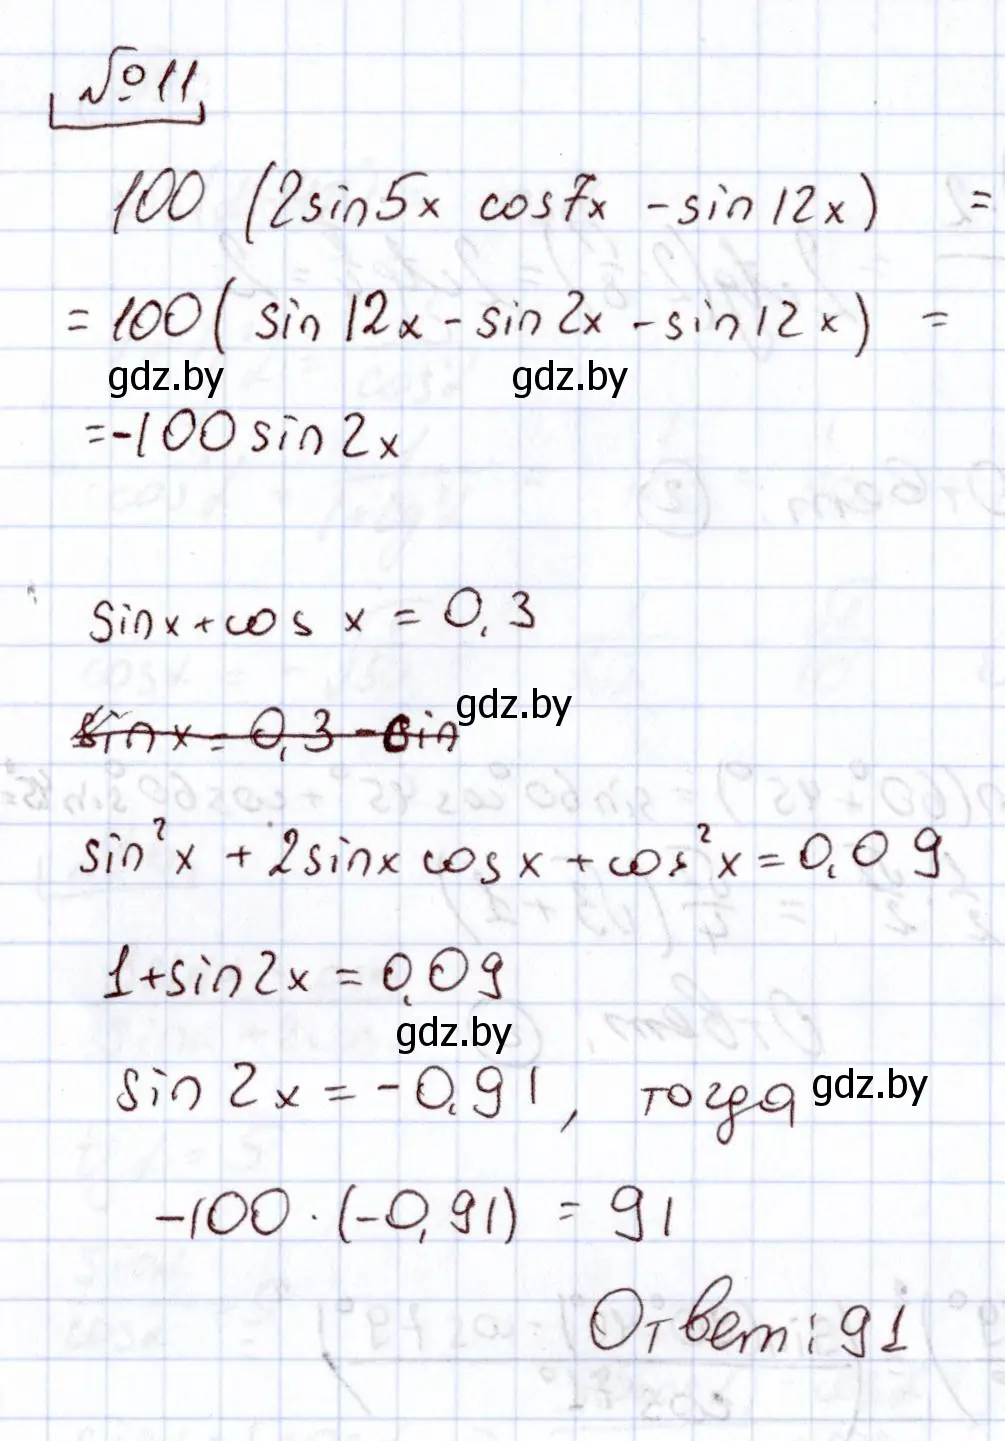 №11
100 (2sin5x cos7x - sin12x) =
= 100( sin 12x - sin 2x - sin 12x) =
gdz.by gdz.by
= -100 sin 2x
sinx + cos x = 0,3
gdz.by
sin x = 0,3 - sin
sin²x + 2sinx cos x + cos²x = 0,09
1 + sin 2x = 0,09
gdz.by
sin 2x = -0,91, тогда gdz.by
-100 · (-0,91) = 91
Ответ: 91